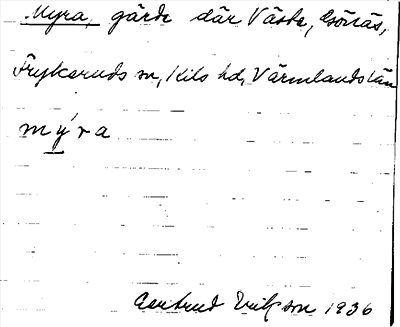 Myra, gärde där Västa, Gönäs,
Frykeruds sn, Kils hd, Värmlands län
mýra
Gertrud Erikson 1936